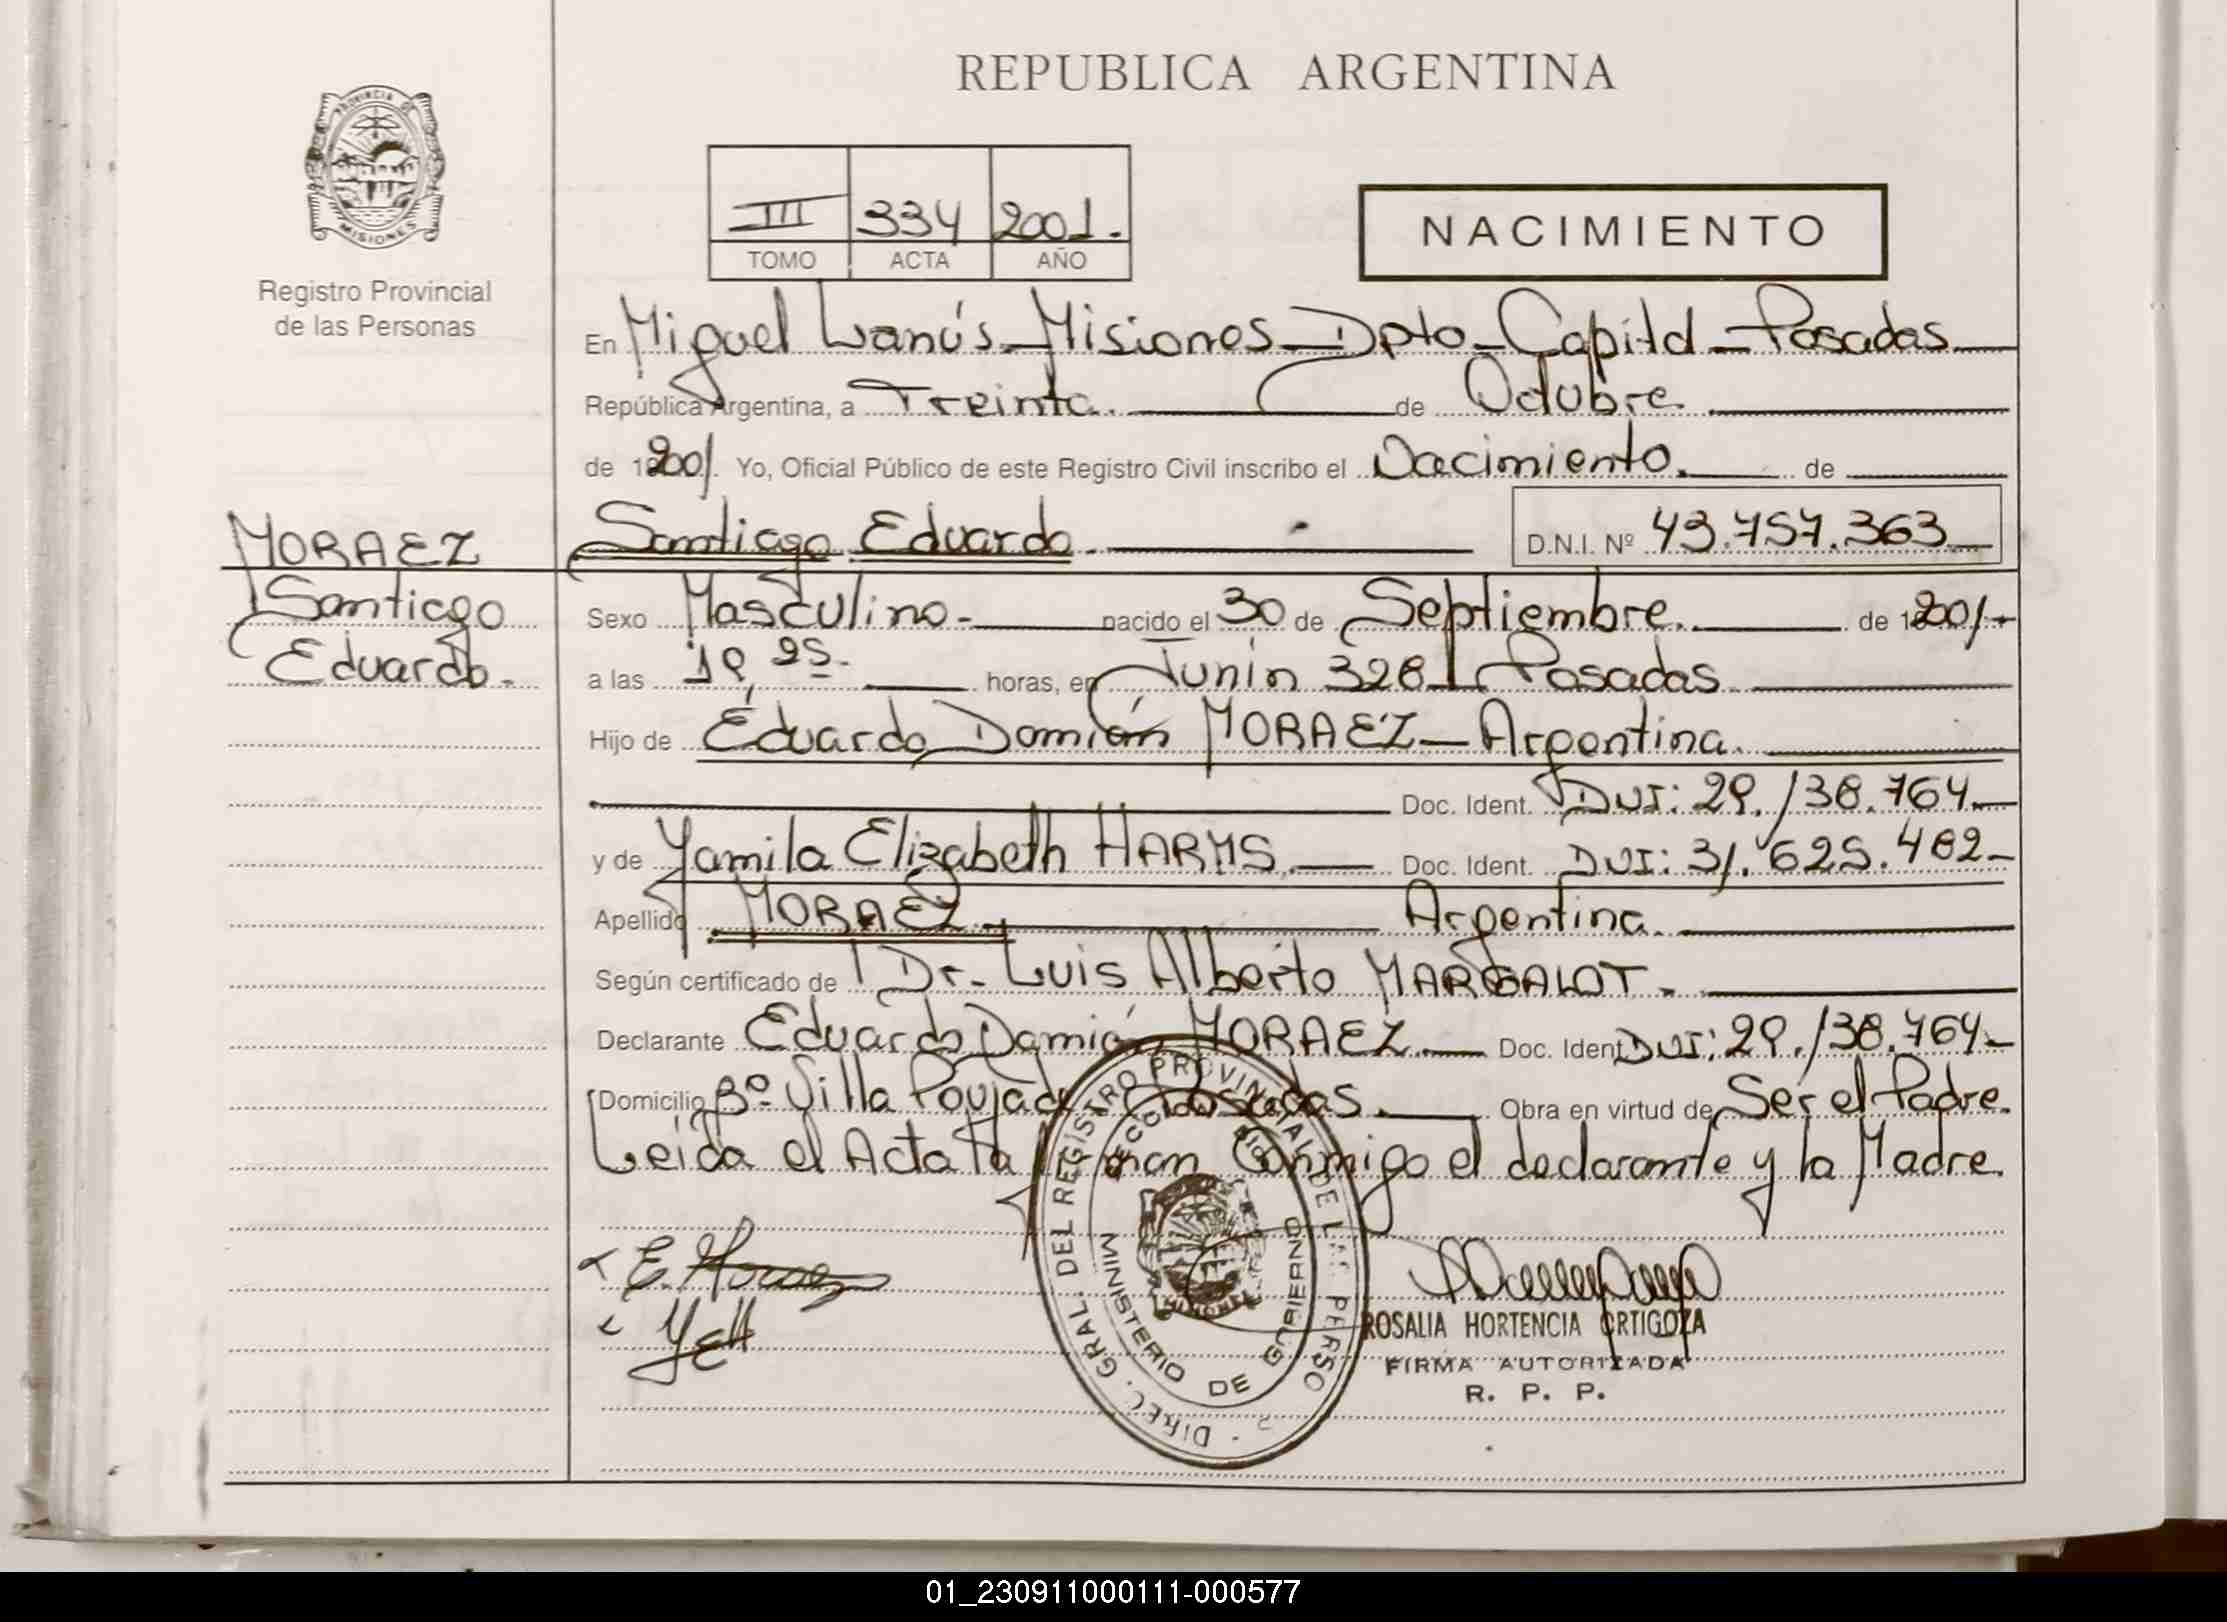 REPUBLICA ARGENTINA
PROVINCIA DE
MISIONES
Registro Provincial
de las Personas
III 334 2001.
TOMO ACTA AÑO
NACIMIENTO
En Miguel Lanús - Misiones - Dpto - Capital - Posadas
República Argentina, a Treinta. de Octubre.
de 2001. Yo, Oficial Público de este Registro Civil inscribo el Nacimiento. de
MORAEZ
Santiago
Eduardo.
Santiago Eduardo. D.N.I. Nº 43.757.363
Sexo Masculino- nacido el 30 de Septiembre. de 2001-
a las 19, 25. horas, en Junín 328 Posadas.
Hijo de Eduardo Damián MORAEZ - Argentina.
Doc. Ident. DNI: 29.138.764
y de Yamila Elizabeth HARMS. Doc. Ident. DNI: 31.625.482-
Apellido MORAEZ. Argentina.
Según certificado de Dr. Luis Alberto MARGALOT.
Declarante Eduardo Damián MORAEZ. Doc. Ident DNI: 29.138.764-
Domicilio Bº Villa Poujade Posadas. Obra en virtud de Ser el Padre.
Leída el Acta la firman Conmigo el declarante y la Madre.
DIREC. GRAL. DEL REGISTRO PROVINCIAL DE LAS PERSO
MINISTERIO DE GOBIERNO
MISIONES
ROSALIA HORTENCIA ORTIGOZA
FIRMA AUTORIZADA
R. P. P.
01_230911000111-000577